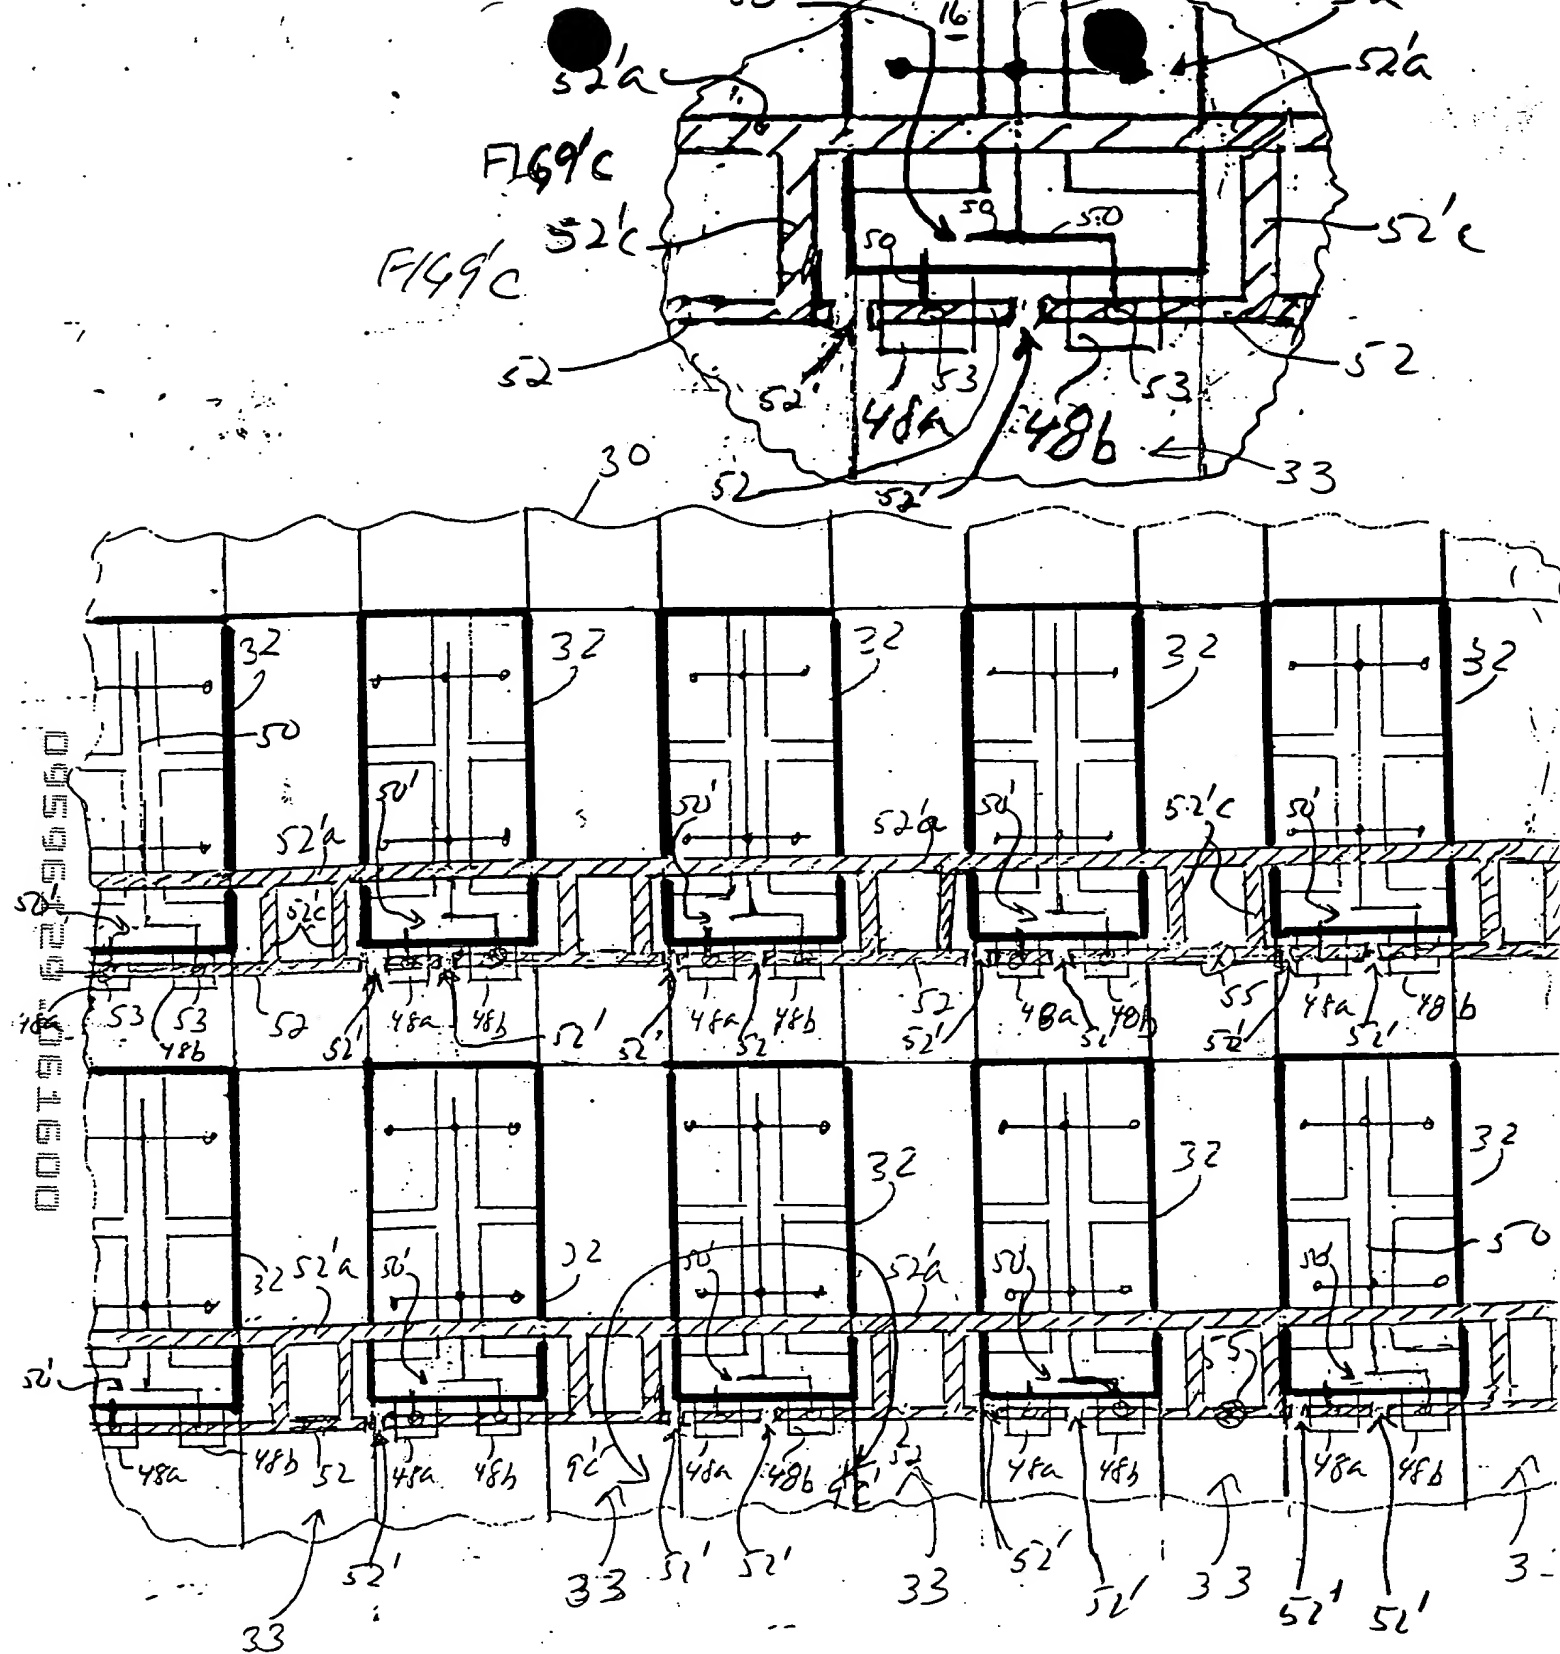 16
52'a
52'a
FIG 9'c
52'c
FIG 9'c
50
50
50
52'c
52
52'
53
53
52
48a
48b
33
52
52'
30
32
32
32
32
32
50
50'
50'
50'
52'c
50'
52'a
52'a
50'
52'c
48a
53
48b
53
52
52'
48a
48b
52'
52'
48a
52'
48b
52
52'
48a
52'
48b
55
52'
48a
52'
48b
32
32
32
32
52'a
50'
32
50'
52'a
50'
50'
50
50'
55
48a
48b
52
48a
48b
9c'
48a
48b
9c'
52
48a
48b
48a
48b
33
52'
33
52'
52'
33
52'
52'
33
52'
52'
3
33
09596729 061600